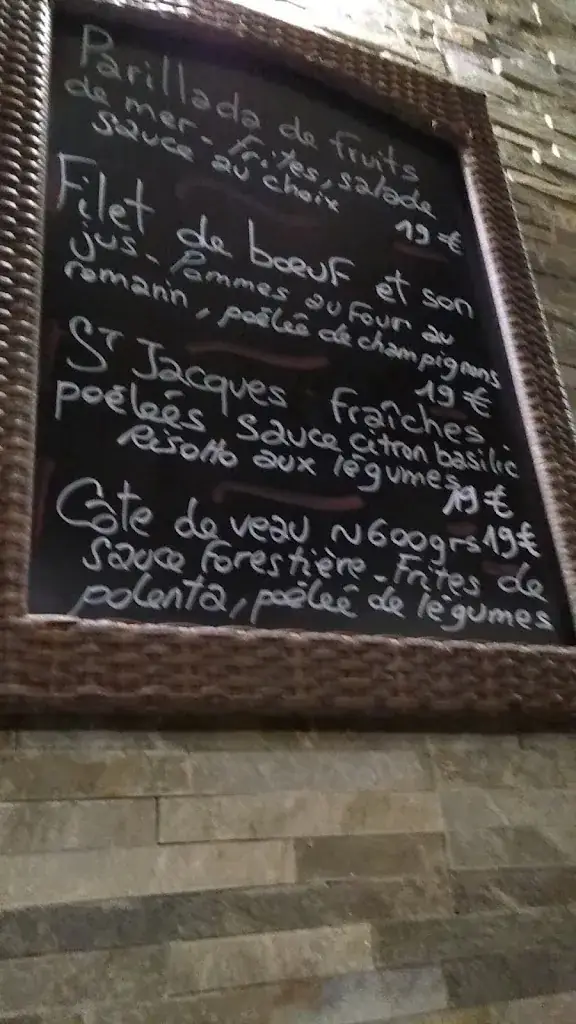 Parillada de fruits
de mer - frites, salade
sauce au choix 19 €
Filet de bœuf et son
jus - Pommes au four au
romarin, poêlée de champignons
19 €
St Jacques fraîches
poêlées sauce citron basilic
Risotto aux légumes 19 €
Côte de veau ~ 600grs 19€
sauce forestière - Frites de
polenta, poêlée de légumes